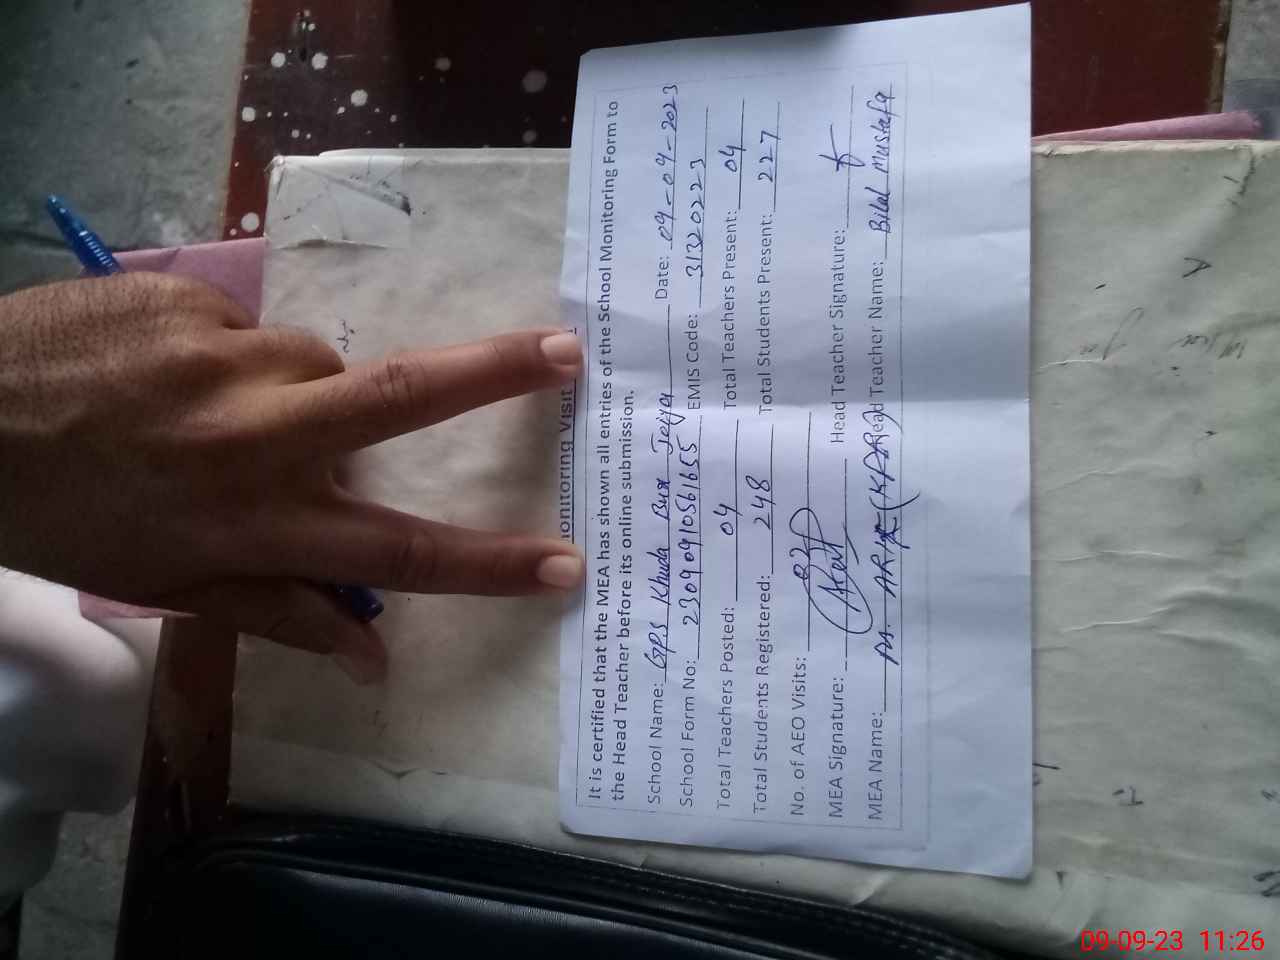 onitoring Visit
It is certified that the MEA has shown all entries of the School Monitoring Form to
the Head Teacher before its online submission.
School Name: GPS Khuda Bux Joiya Date: 09-09-2023
School Form No: 23090910561655 EMIS Code: 31320223
Total Teachers Posted: 04 Total Teachers Present: 04
Total Students Registered: 248 Total Students Present: 227
No. of AEO Visits: 02
MEA Signature: Head Teacher Signature:
MEA Name: M. Head Teacher Name: Bilal Mustafa
09-09-23 11:26